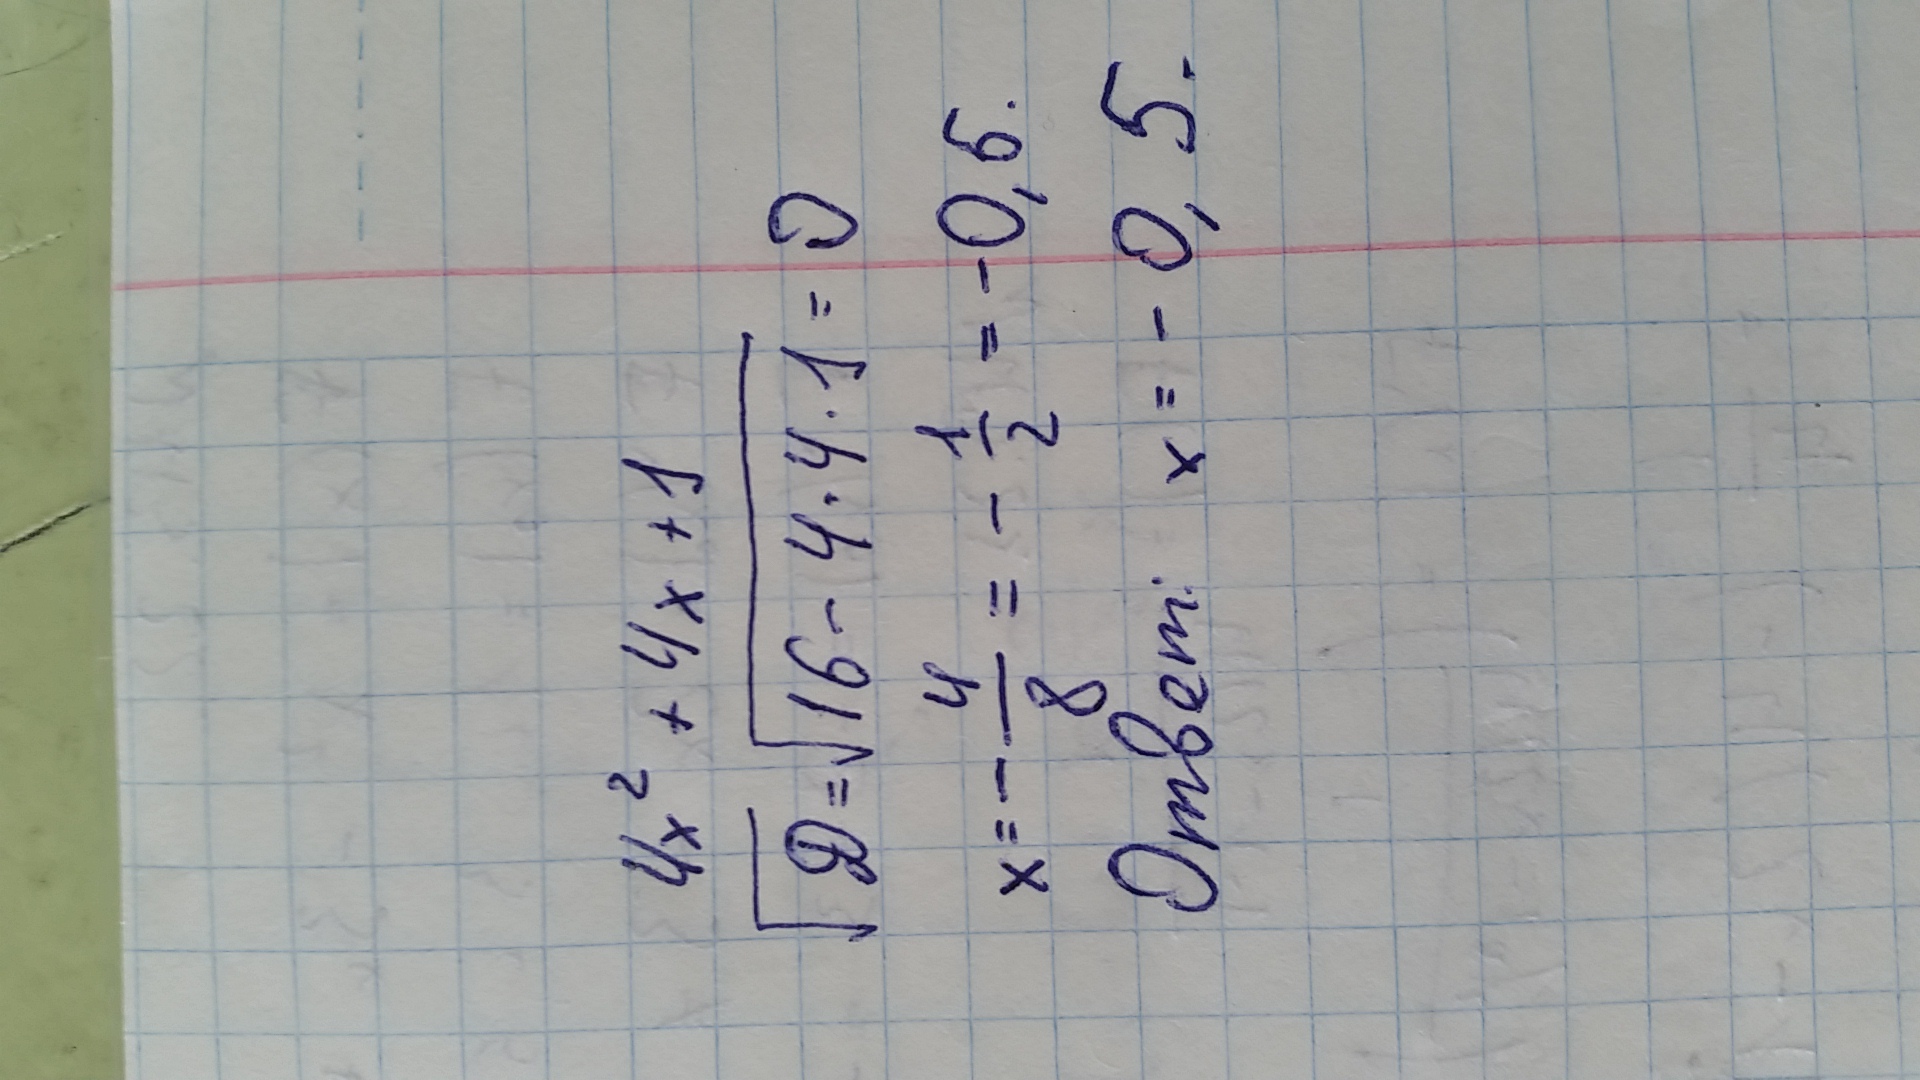 4x² + 4x + 1
√D = √16 - 4 · 4 · 1 = 0
x = - 4/8 = - 1/2 = -0,5.
Ответ: x = - 0,5.